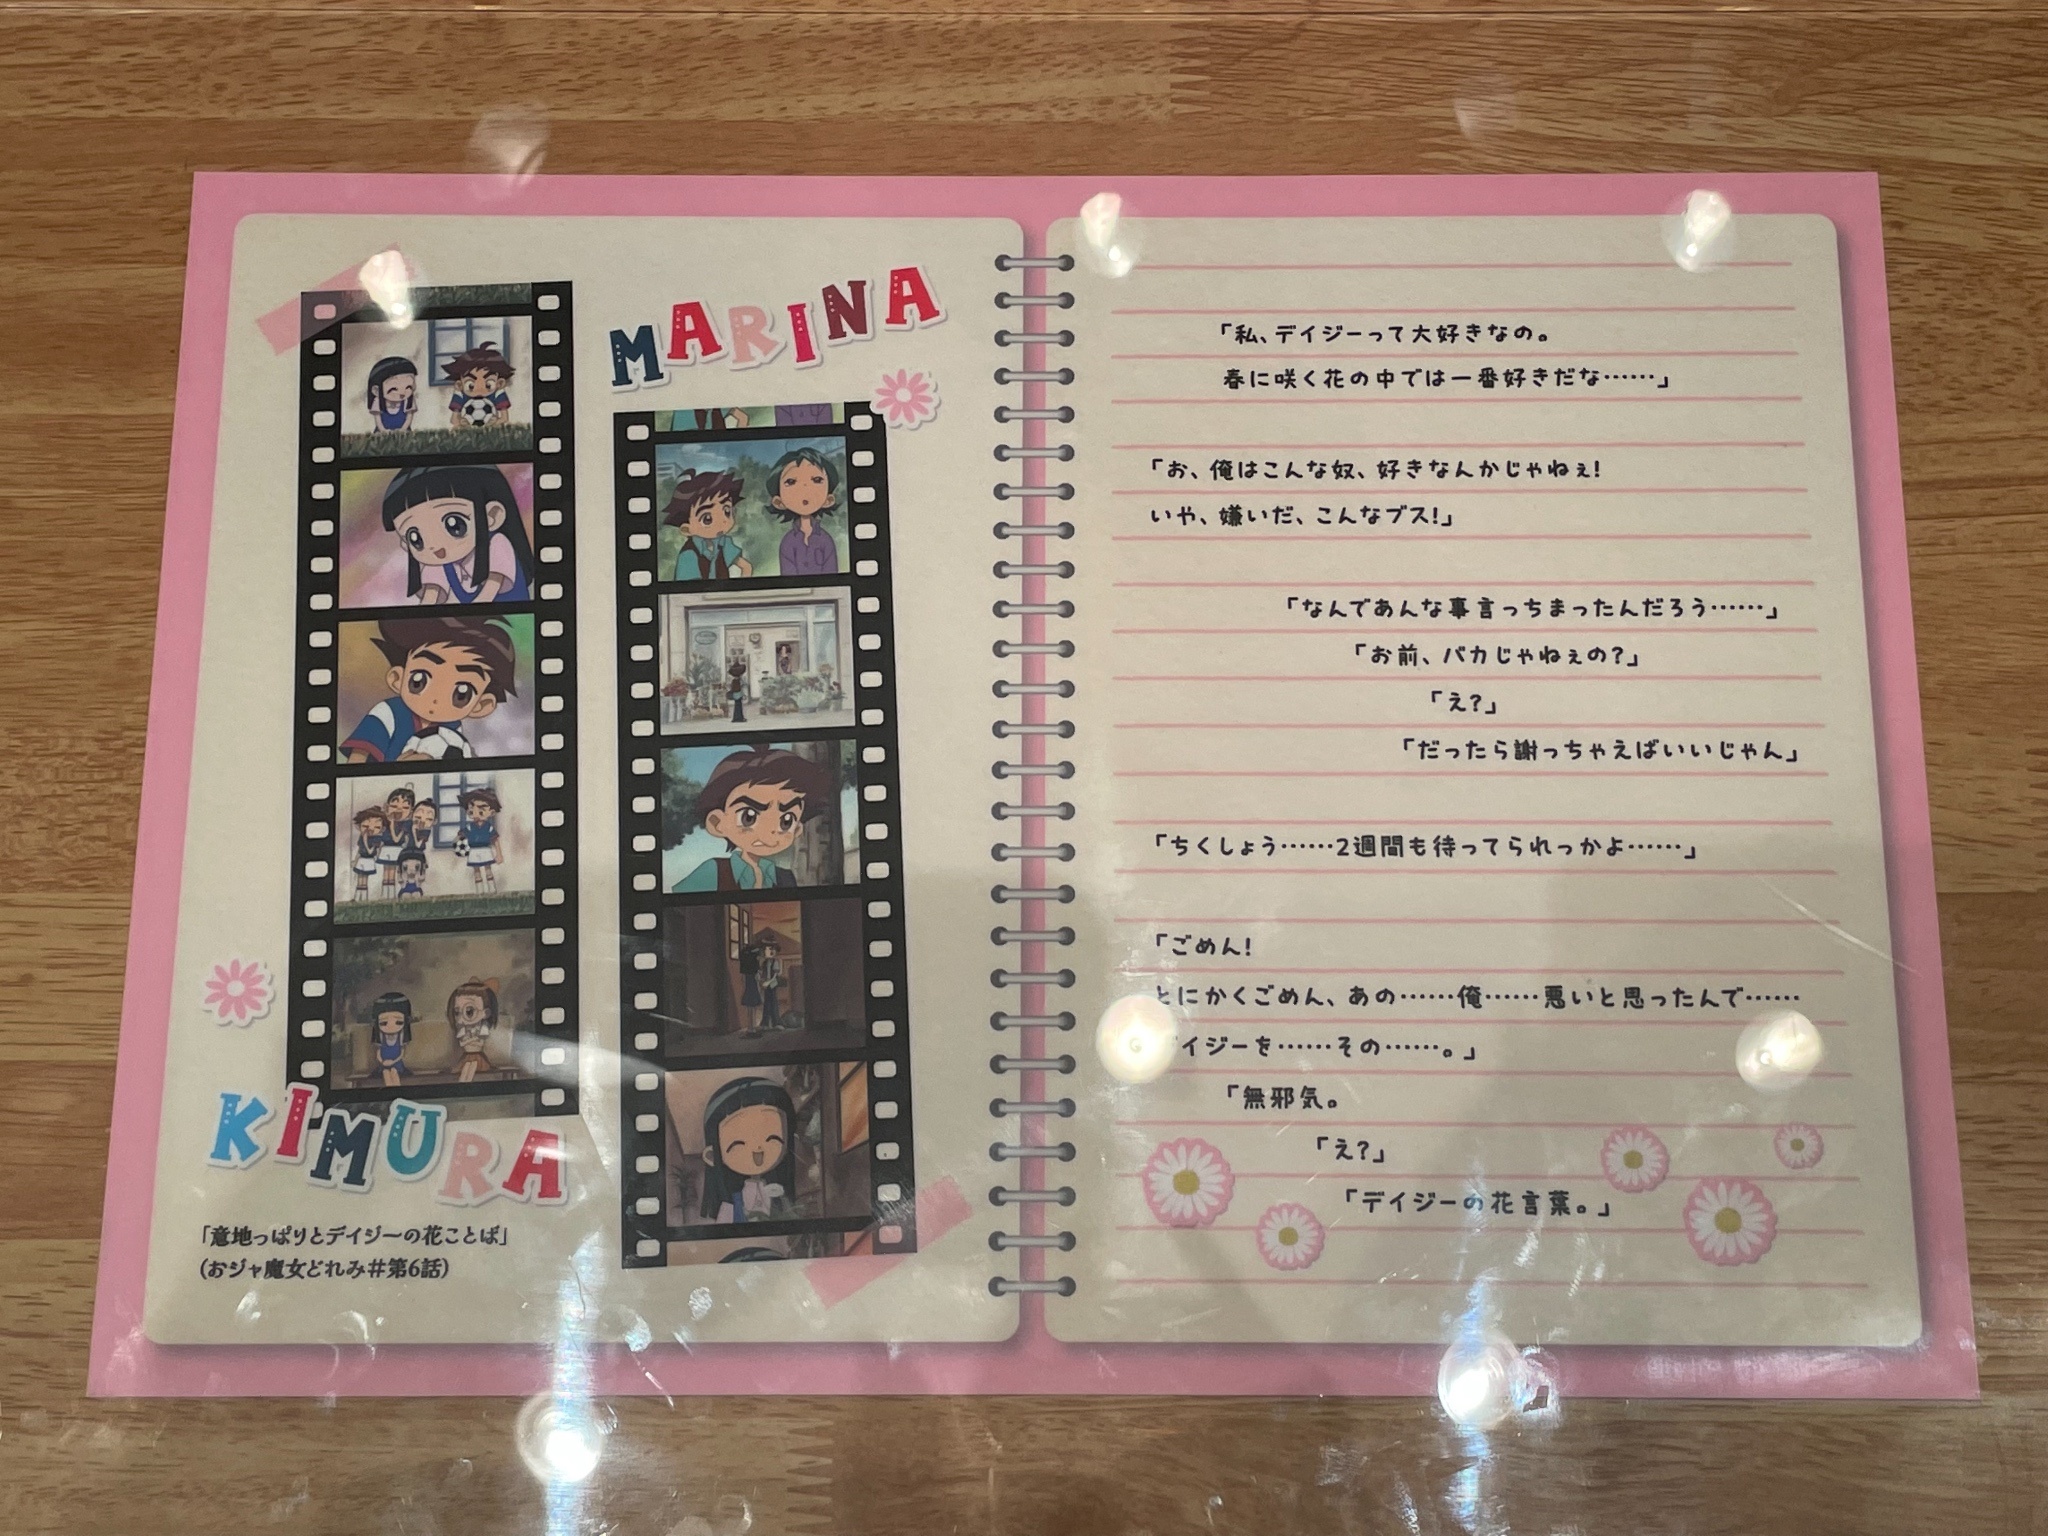 MARINA
KIMURA
「意地っぱりとデイジーの花ことば」
(おジャ魔女どれみ#第6話)
「私、デイジーって大好きなの。
春に咲く花の中では一番好きだな……」
「お、俺はこんな奴、好きなんかじゃねぇ!
いや、嫌いだ、こんなブス!」
「なんであんな事言っちまったんだろう……」
「お前、バカじゃねぇの?」
「え?」
「だったら謝っちゃえばいいじゃん」
「ちくしょう……2週間も待ってられっかよ……」
「ごめん!
とにかくごめん、あの……俺……悪いと思ったんで……
イジーを……その……。」
「無邪気。
「え?」
「デイジーの花言葉。」